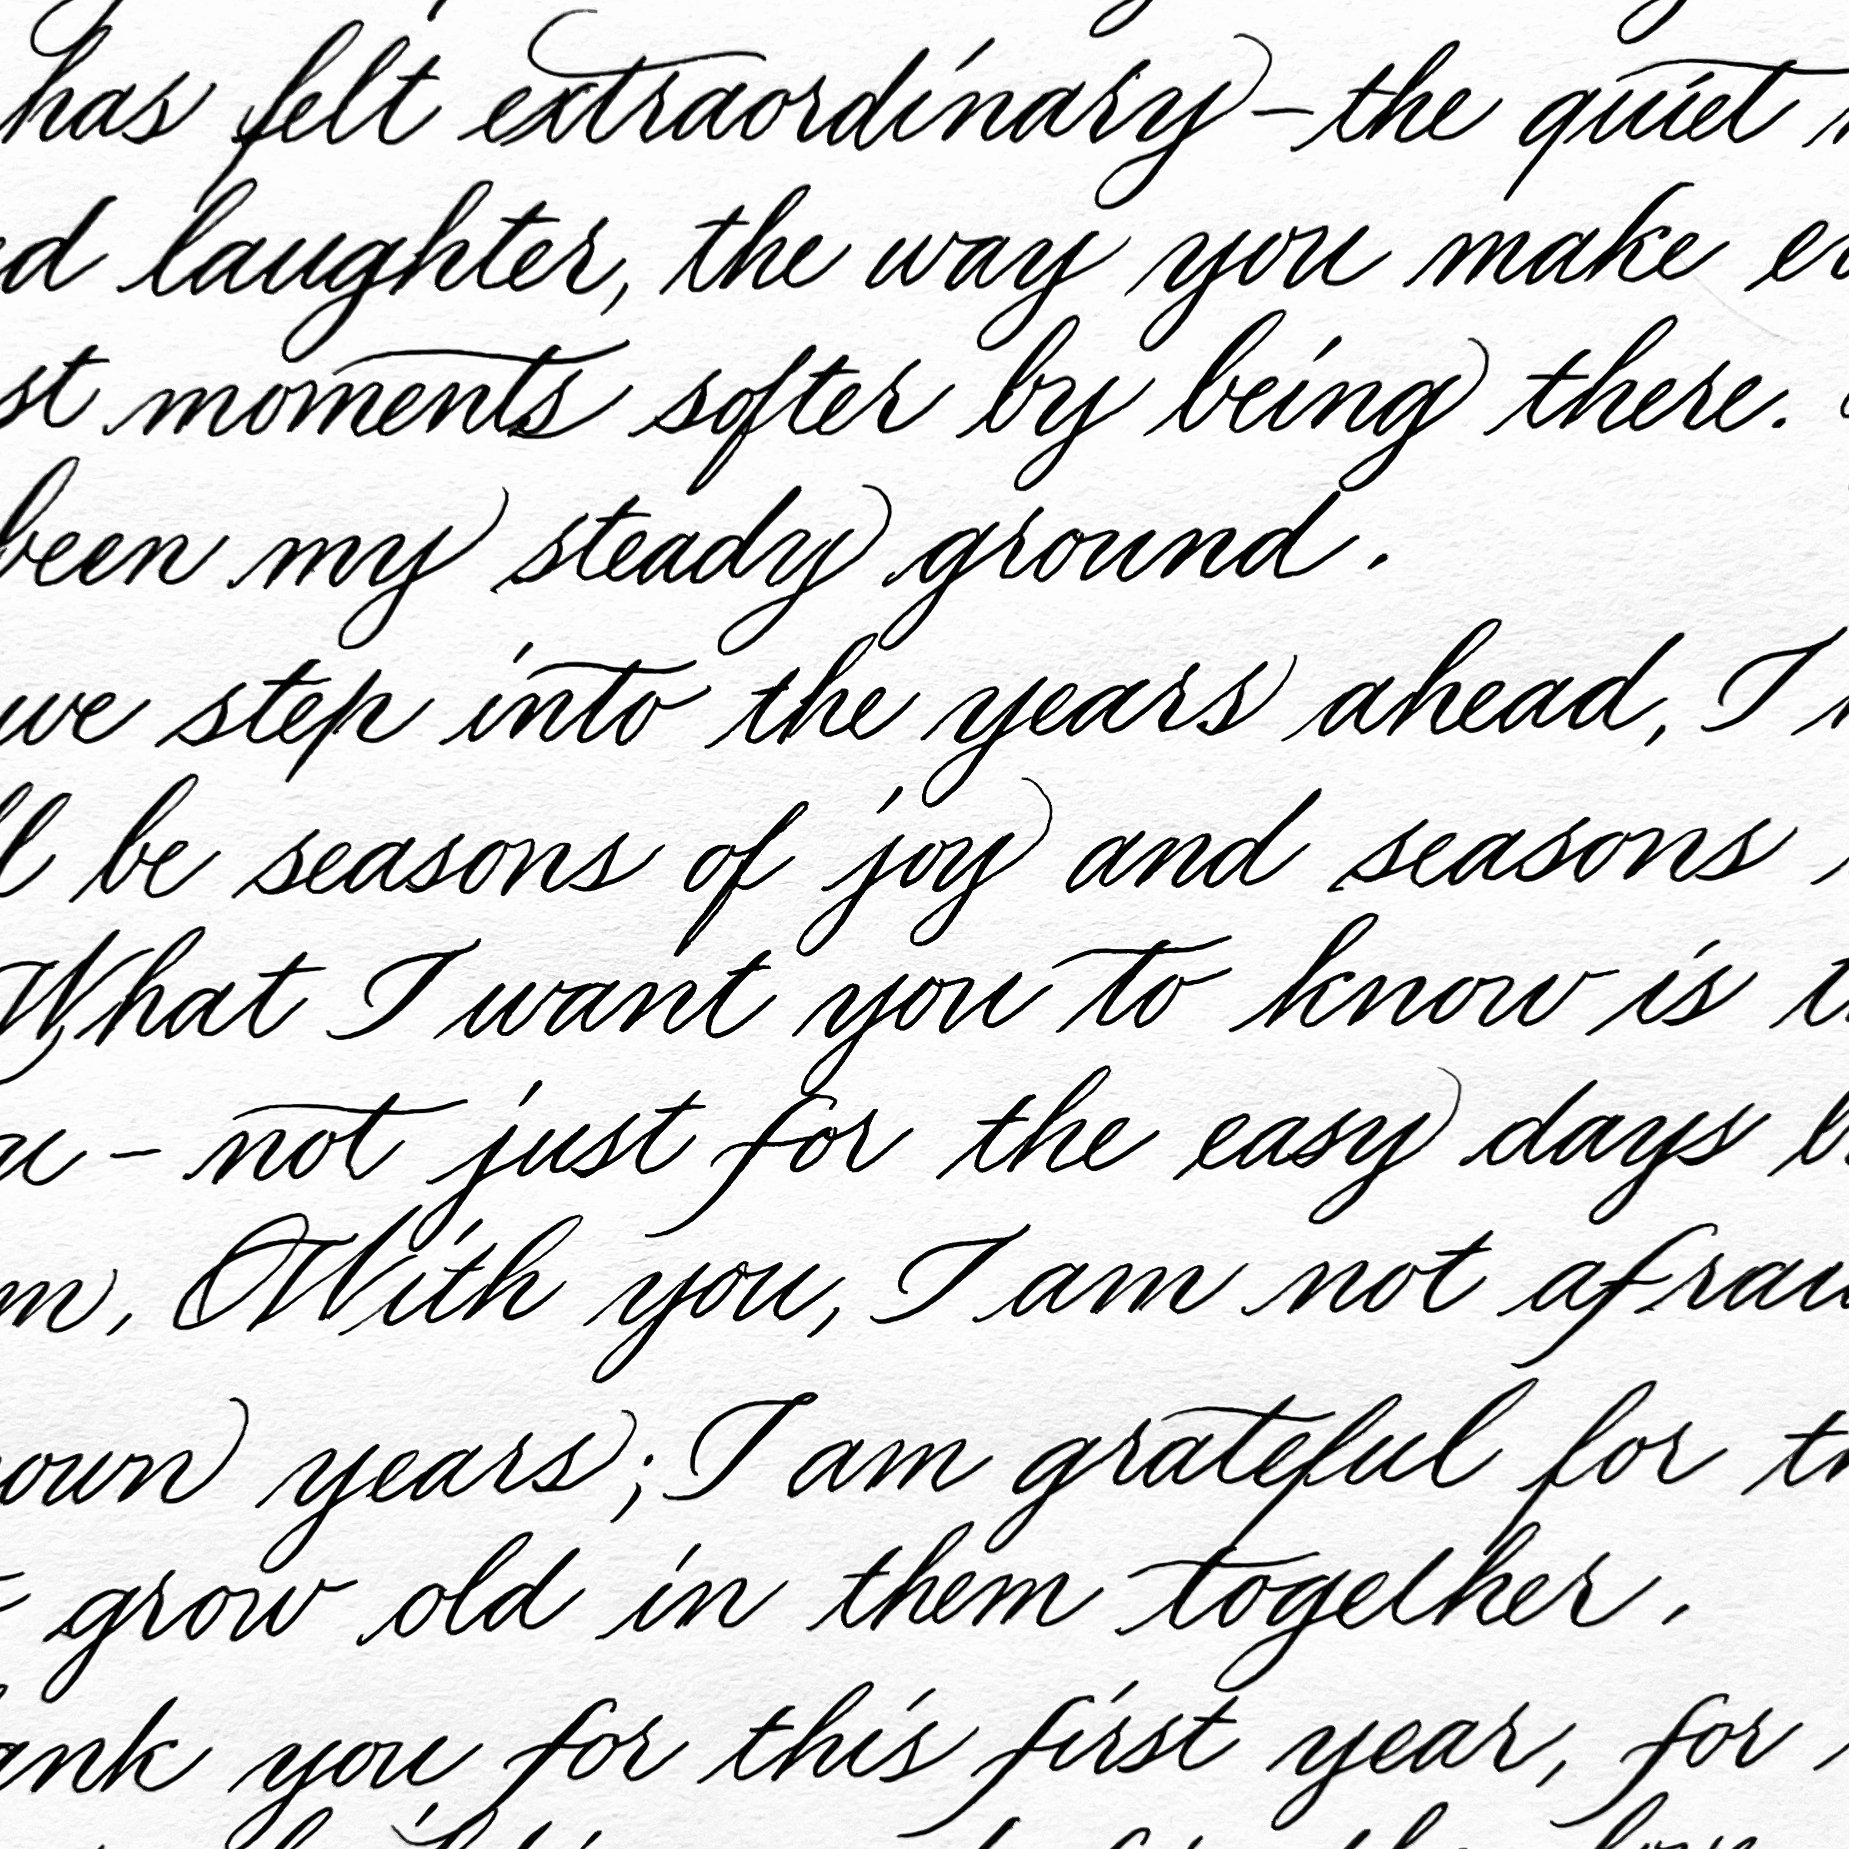 has felt extraordinary - the quiet
laughter, the way you make
moments softer by being there.
been my steady ground.
we step into the years ahead, I
be seasons of joy and seasons
What I want you to know is
- not just for the easy days
With you, I am not
years; I am grateful for
grow old in them together.
you for this first year, for